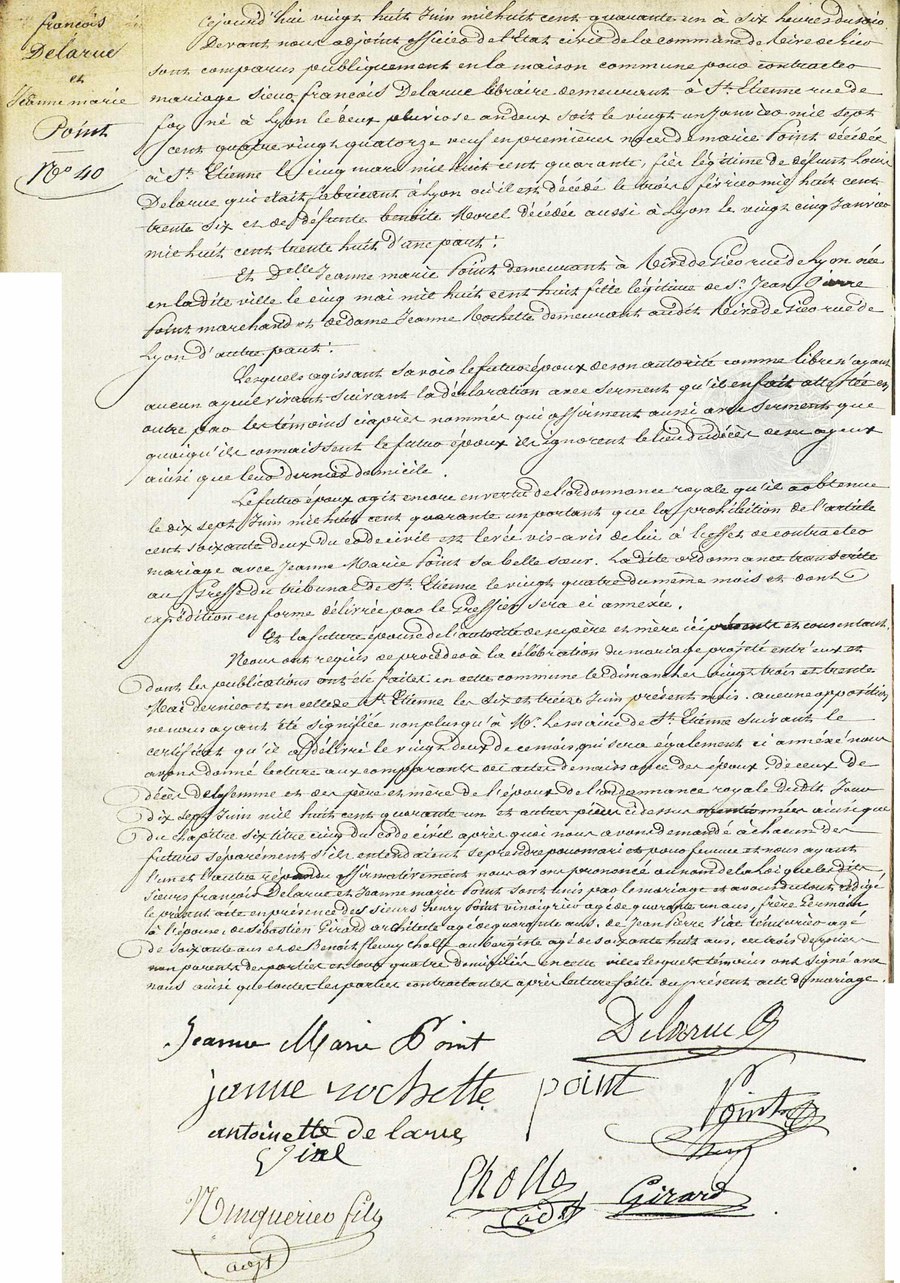 françois
Delarue
et
Jeanne marie
Point
N° 40
Cejourd'hui vingt huit Juin mil huit cent quarante un à six heures du soir
Devant nous adjoint officier de l'Etat civil de la commune de Rive de Gier
sont comparus publiquement en la maison commune pour contracter
mariage sieur françois Delarue libraire demeurant à St. Etienne rue de
foy né à Lyon le deux pluviose an deux soit le vingt un Janvier mil sept
cent quatre vingt quatorze veuf en premières noces de marie Point décédée
à St. Etienne le cinq mars mil huit cent quarante, fils légitime de défunt Louis
Delarue qui était fabricant à Lyon où il est décédé le trois février mil huit cent
trente six et de défunte benoite Morel décédée aussi à Lyon le vingt cinq Janvier
mil huit cent trente huit d'une part.
Et Dlle Jeanne marie Point demeurant à Rive de Gier rue de Lyon née
en la dite ville le cinq mai mil huit cent huit fille légitime de Sr. Jean Pierre
Point marchand et de dame Jeanne Rochette demeurant audit Rive de Gier rue de
Lyon d'autre part.
Lesquels agissant savoir le futur époux de son autorité comme libre n'ayant
aucun ayeul vivant suivant la déclaration avec serment qu'il en fait attestée en
outre par les témoins ciaprès nommés qui affirment aussi avec serment que
quoiqu'ils connaissent le futur époux ils ignorent le lieu du décès de ses ayeux
ainsi que leur dernier domicile.
Le futur époux agit encore en vertu de l'ordonnance royale qu'il a obtenue
le dix sept Juin mil huit cent quarante un portant que la prohibition de l'article
cent soixante deux du code civil est levée vis-avis de lui à l'effet de contracter
mariage avec Jeanne-Marie Point sa belle sœur. La dite ordonnance transcrite
au Greffe du tribunal de St. Etienne le vingt quatre du même mois et dont
expédition en forme délivrée par le Greffier sera ci annexée.
Et la future épouse de l'autorité de ses père et mère ici présents et consentant.
Nous ont requis de procéder à la célébration du mariage projeté entr'eux et
dont les publications ont été faites en cette commune les dimanches vingt trois et trente
Mai dernier et en celle de St. Etienne les six et treize Juin présent mois. aucune opposition
ne nous ayant été signifiée non plus qu'à Mr. Le maire de St. Etienne suivant le
certificat qu'il a délivré le vingt deux de ce mois qui sera également ci annéxé nous
avons donné lecture aux comparants des actes de naissance des époux de ceux de
décès de la femme et des père et mère de l'époux de l'ordonnance royale dudit Jour
dix sept Juin mil huit cent quarante un et autres pièces cidessus mentionnées ainsi que
du chapitre six titre cinq du code civil après quoi nous avons demandé à chacun des
futurs séparément s'ils entendaient se prendre pour mari et pour femme et nous ayant
l'un et l'autre répondu affirmativement nous avons prononcé au nom de la loi que les dits
sieurs françois Delarue et Jeanne marie Point sont unis par le mariage et avons du tout rédigé
le présent acte en présence des sieurs henry Point vinaigrier agé de quarante un ans, frère Germain
à l'épouse, de Sébastien Girard architecte agé de quarante ans, de Jean Pierre Vial teinturier agé
de soixante ans et de Benoit fleury Cholle aubergiste agé de soixante huit ans. ces trois derniers
non parents des parties et tous quatre domiciliés en cette ville lesquels témoins ont signé avec
nous ainsi que toutes les parties contractantes après lecture faite du présent acte de mariage
Jeanne Marie Point
Delarue
janne rochette
point
Point
henry
antoinette delarue
Vial
Cholle
Girard
fils
adjt